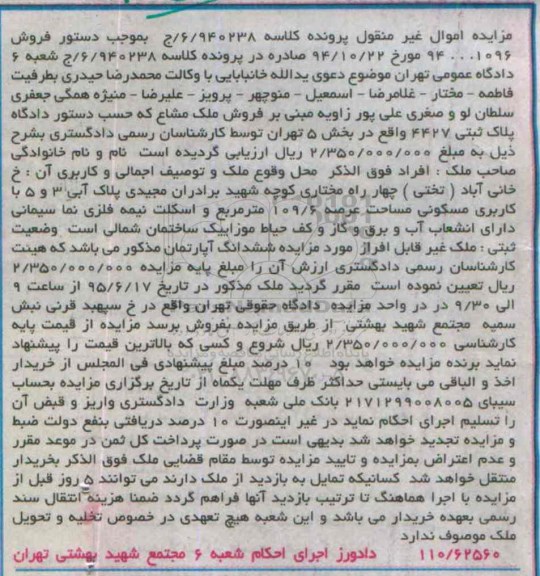 مزایده اموال غیر منقول پرونده کلاسه ۶/۹۴۰۲۳۸/ج بموجب دستور فروش
۱۰۹۶...۹۴ مورخ ۹۴/۱۰/۲۲ صادره در پرونده کلاسه ۶/۹۴۰۲۳۸/ج شعبه ۶
دادگاه عمومی تهران موضوع دعوی یدالله خانبابایی با وکالت محمدرضا حیدری بطرفیت
فاطمه - مختار - غلامرضا - اسمعیل - منوچهر - پرویز - علیرضا - منیژه همگی جعفری
سلطان لو و صغری علی پور زاویه مبنی بر فروش ملک مشاع که حسب دستور دادگاه
پلاک ثبتی ۴۴۲۷ واقع در بخش ۵ تهران توسط کارشناسان رسمی دادگستری بشرح
ذیل به مبلغ ۲/۳۵۰/۰۰۰/۰۰۰ ریال ارزیابی گردیده است نام و نام خانوادگی
صاحب ملک : افراد فوق الذکر محل وقوع ملک و توصیف اجمالی و کاربری آن : خ
خانی آباد ( تختی ) چهار راه مختاری کوچه شهید برادران مجیدی پلاک آبی ۳ و ۵ با
کاربری مسکونی مساحت عرصه ۱۰۹/۶ مترمربع و اسکلت نیمه فلزی نما سیمانی
دارای انشعاب آب و برق و گاز و کف حیاط موزاییک ساختمان شمالی است وضعیت
ثبتی : ملک غیر قابل افراز مورد مزایده ششدانگ آپارتمان مذکور می باشد که هیئت
کارشناسان رسمی دادگستری ارزش آن را مبلغ پایه مزایده ۲/۳۵۰/۰۰۰/۰۰۰
ریال تعیین نموده است مقرر گردید ملک مذکور در تاریخ ۹۵/۶/۱۷ از ساعت ۹
الی ۹/۳۰ در در واحد مزایده دادگاه حقوقی تهران واقع در خ سپهبد قرنی نبش
سمیه مجتمع شهید بهشتی از طریق مزایده بفروش برسد مزایده از قیمت پایه
کارشناسی ۲/۳۵۰/۰۰۰/۰۰۰ ریال شروع و کسی که بالاترین قیمت را پیشنهاد
نماید برنده مزایده خواهد بود ۱۰ درصد مبلغ پیشنهادی فی المجلس از خریدار
اخذ و الباقی می بایستی حداکثر ظرف مهلت یکماه از تاریخ برگزاری مزایده بحساب
سیبای ۲۱۷۱۲۹۹۰۰۸۰۰۵ بانک ملی شعبه وزارت دادگستری واریز و قبض آن
را تسلیم اجرای احکام نماید در غیر اینصورت ۱۰ درصد دریافتی بنفع دولت ضبط
و مزایده تجدید خواهد شد بدیهی است در صورت پرداخت کل ثمن در موعد مقرر
و عدم اعتراض بمزایده و تایید مزایده توسط مقام قضایی ملک فوق الذکر بخریدار
منتقل خواهد شد کسانیکه تمایل به بازدید از ملک دارند می توانند ۵ روز قبل از
مزایده با اجرا هماهنگ تا ترتیب بازدید آنها فراهم گردد ضمنا هزینه انتقال سند
رسمی بعهده خریدار می باشد و این شعبه هیچ تعهدی در خصوص تخلیه و تحویل
ملک موصوف ندارد
۱۱۰/۶۲۵۶۰ دادورز اجرای احکام شعبه ۶ مجتمع شهید بهشتی تهران